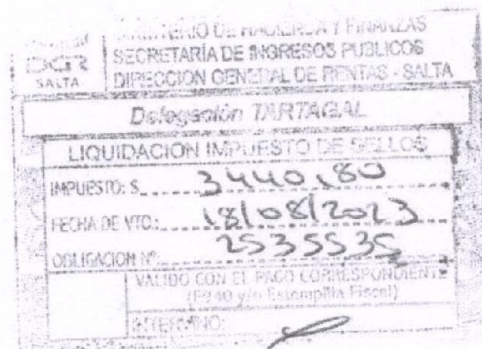 MINISTERIO DE HACIENDA Y FINANZAS
DGR
SALTA
SECRETARÍA DE INGRESOS PUBLICOS
DIRECCION GENERAL DE RENTAS - SALTA
Delegación TARTAGAL
LIQUIDACION IMPUESTO DE SELLOS
IMPUESTO: $ 3440,80
FECHA DE VTO.: 18/08/2023
OBLIGACION Nº: 2535535
VALIDO CON EL PAGO CORRESPONDIENTE
(F940 y/o Estampilla Fiscal)
INTERVINO: